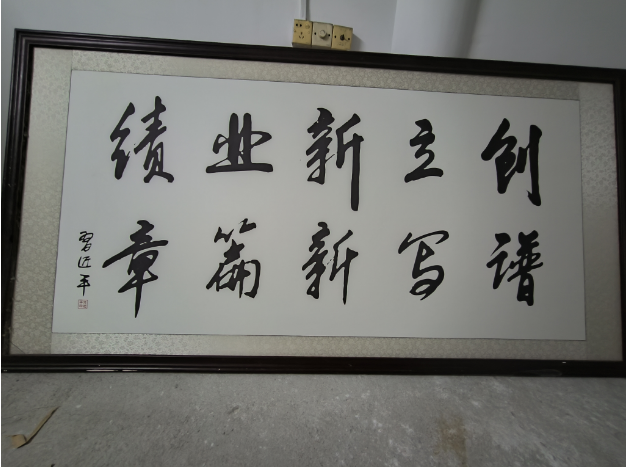 创立新业绩
谱写新篇章
習近平